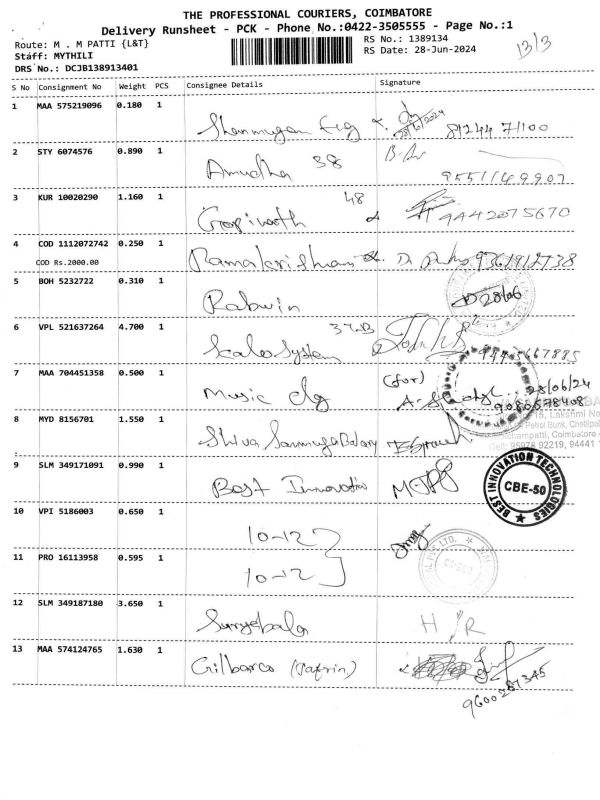 THE PROFESSIONAL COURIERS, COIMBATORE
Delivery Runsheet - PCK - Phone No.:0422-3505555 - Page No.:1
Route: M . M PATTI {L&T}
RS No.: 1389134
13/3
Staff: MYTHILI
RS Date: 28-Jun-2024
DRS No.: DCJB138913401
S No Consignment No Weight PCS Consignee Details Signature
1 MAA 575219096 0.180 1
Shanmugam Eng 28/6/2024 81244 71100
2 STY 6074576 0.890 1
Amudha 38 9551149907
3 KUR 10020290 1.160 1
Gopinath 48 9442075670
4 COD 1112072742 0.250 1
COD Rs.2000.00
Ramakrishnan 9361912738
5 BOH 5232722 0.310 1
Rabwin 28/06
6 VPL 521637264 4.700 1
Scaleo System 37-B 9445667885
7 MAA 704451358 0.500 1
Music dg (for) 28/06/24
9080578408
15, Lakshmi Na
Petrol Bunk, Chettipal
Coimbatore -
Cell: 95978 92219, 94441
8 MYD 8156701 1.550 1
Shiva
9 SLM 349171091 0.990 1
Best Innovation
BEST INNOVATION TECHNOLOGIES
CBE-50
10 VPI 5186003 0.650 1
10-12
11 PRO 16113958 0.595 1
10-12
PVT. LTD.
12 SLM 349187180 3.650 1
Suryabala H R
13 MAA 574124765 1.630 1
Gilbarco (Tafrin)
9600287345